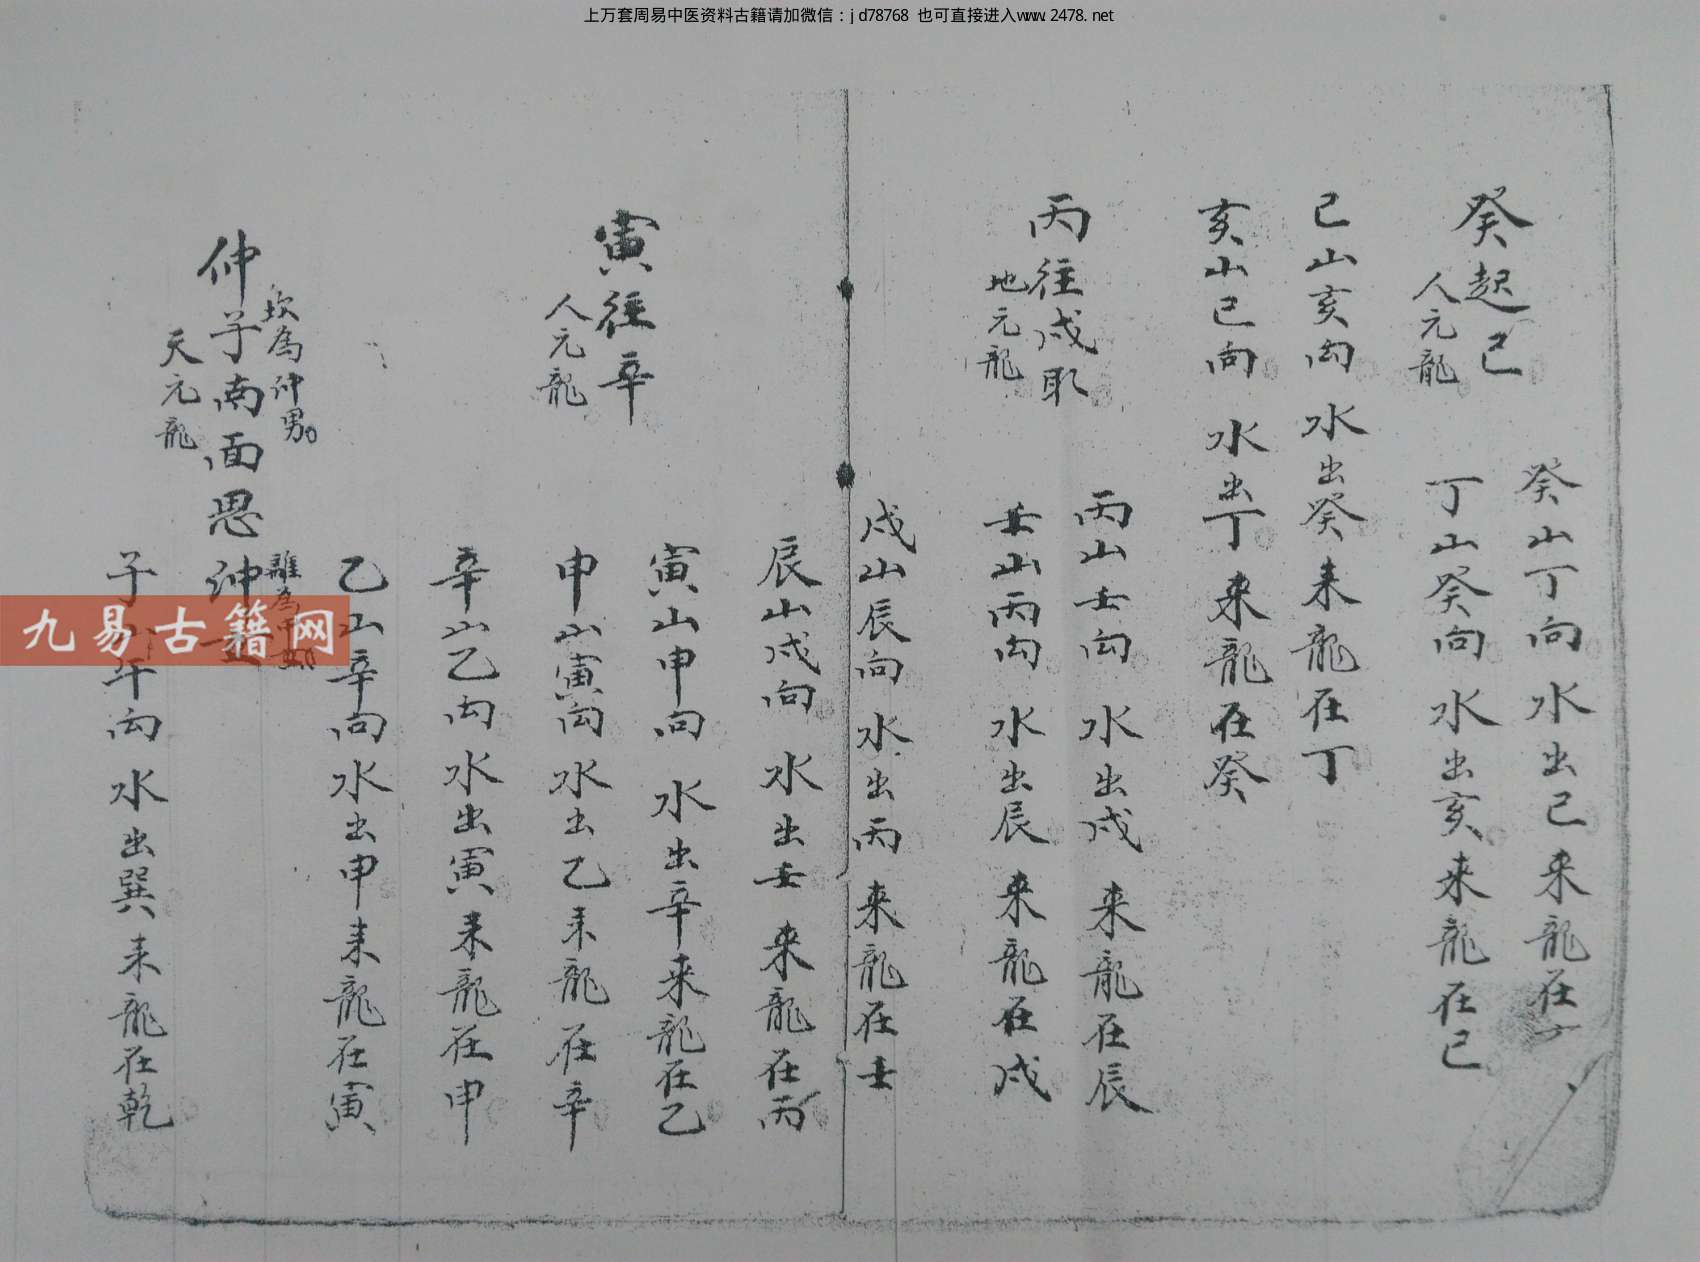 上万套周易中医资料古籍请加微信：jd78768 也可直接进入www.2478.net
癸山丁向 水出巳 来龍在丁
癸起巳
人元龍
丁山癸向 水出亥 来龍在巳
巳山亥向 水出癸 来龍在丁
亥山巳向 水出丁 来龍在癸
丙往戌取
地元龍
丙山壬向 水出戌 来龍在辰
壬山丙向 水出辰 来龍在戌
戌山辰向 水出丙 来龍在壬
辰山戌向 水出壬 来龍在丙
寅山申向 水出辛 来龍在乙
寅往辛
人元龍
申山寅向 水出乙 来龍在辛
辛山乙向 水出寅 来龍在申
乙山辛向 水出申 来龍在寅
坎為仲男
離為
仲子南面思仲
天元龍
子山午向 水出巽 来龍在乾
九易古籍网